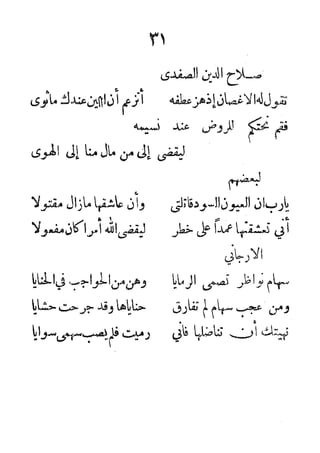 ٣١
صلاح الدين الصفدى
تقول له الاغصان إذ هز عطفه أتزعم أن اللين عندك ما ثوى
فقم نحتكم للروض عند نسيمه
ليقضى إلى من مال منا إلى الهوى
لبعضهم
يارب ان العيون السود قاتلتى وأن عاشقها مازال مقتولا
أنى تعشقتها عمداً على خطر ليقضى الله أمرا كان مفعولا
الارجانى
سهام نواظر تصمى الرمايا وهن من الحواجب فى الحنايا
ومن عجب سهام لم تفارق حناياها وقد جرحت حشايا
نهيتك أن تناضلها فانى رميت فلم يصب سهمى سوايا